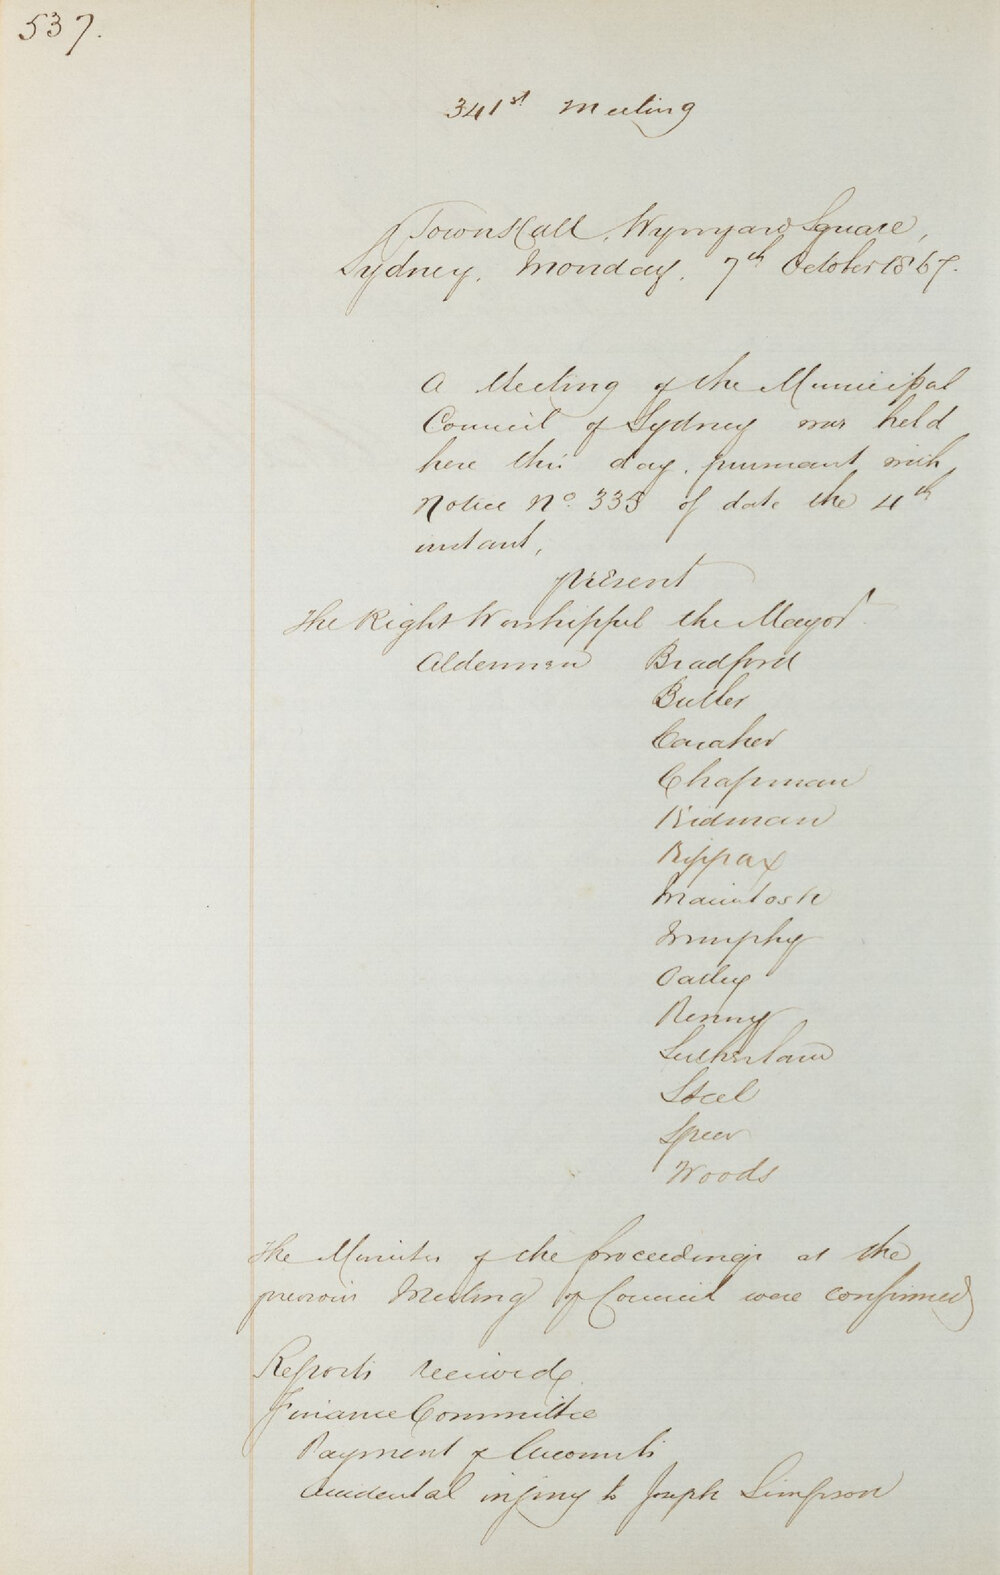 537.
341st Meeting
Town Hall, Wynyard Square,
Sydney, Monday, 7th October 1867.
A Meeting of the Municipal
Council of Sydney was held
here this day, pursuant with
Notice No. 335 of date the 4th
instant,
present
The Right Worshipful the Mayor
Aldermen Bradford
Butler
Caraher
Chapman
Kidman
Kippax
Macintosh
Murphy
Oatley
Renny
Sutherland
Steel
Speer
Woods
The Minutes of the proceedings at the
previous Meeting of Council were confirmed
Reports received.
Finance Committee
Payment of Accounts
Accidental injury to Joseph Simpson